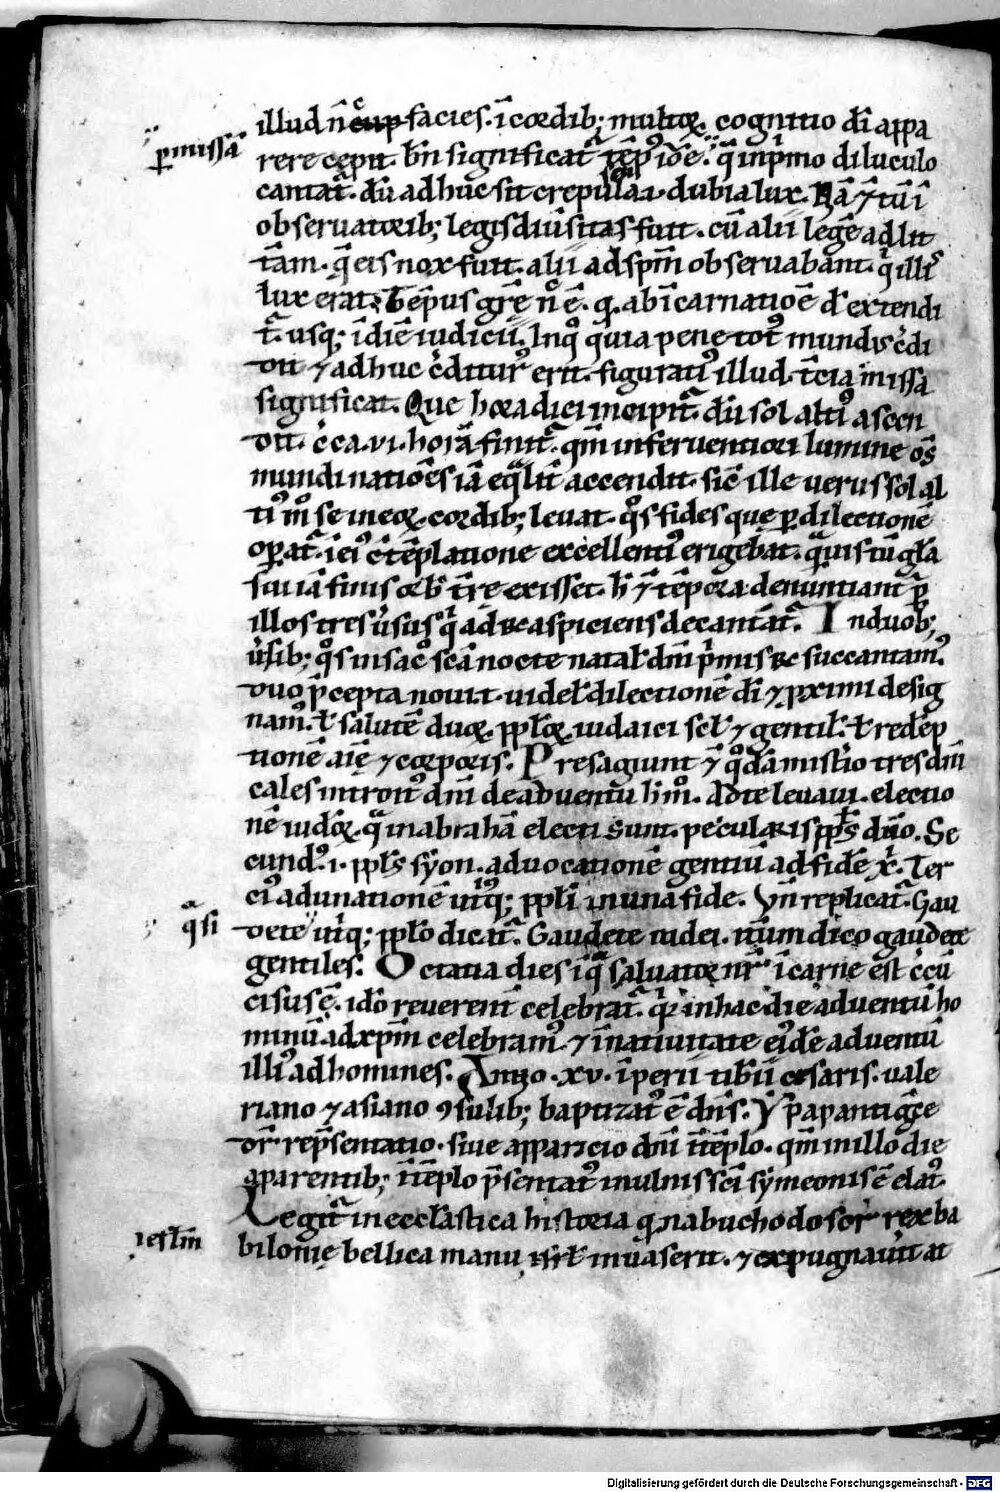 illud n̄ facies. ī cordib; multoꝝ cognitio dī appa
ꝑ missā
rere cępit. bn̄ significat᷑ tēp᷒ iōe. q̄ in pͥmo diluculo
cantat᷑. dū adhuc sit crepuscula. i. dubia lux. Nā ⁊ tū ī
obseruatorib; legis diūsitas fuit. cū alii legē ad lit
tām. q̄ eis nox fuit. alii ad spm̄ obseruabant. qͥ illis
lux erat. Tēpus grē n̄c ē. qđ ab īcarnatiōe dī extendi
t᷑ usq; ī diē iudicii. In q᷒ quia pene tot᷒ mundus c̄di
dit ⁊ adhuc c̄ditur᷒ erit. figurati᷒ illud t̄cia missa
significat. Que hora diei incipit᷑. dū sol alti᷒ ascen
dit. c̄ca .vi. horā finit᷑. qm̄ inferuentiori lumine oms̄
mundi nationes iā eq̄lit̄ accendit. sic̄ ille uerus sol al
ti᷒ m̊ se in eoꝝ cordib; leuat. qͦs fides que ꝑ dilectionē
oꝑat᷑. ī ei᷒ c̄tēplatione excellenti᷒ erigebat. quasi tū gl̄a
sui iā finis orb̄ t̄re exisset. h̄ ⁊ tēpora denuntiant᷑ ꝑ
illos tres ūsus qͥ ad ℞ aspiciens decantāt᷑. In duob;
ūsib; qͦs in sac̊ sc̄a nocte natal̄ dn̄i pͥmis ℞ succantam᷒.
duo p̄cepta noui .t. uidel̄ dilectionē dī ⁊ ꝓximi desig
nam᷒. ł salutē duoꝝ ppl̄oꝝ iudaici scl̄ ⁊ gentil̄. ł redēp
tionē aīę ⁊ corporis. Presagiunt ⁊ qͦdā mist̄io tres dn̄i
cales introit᷒ dn̄i de aduentū h̄m᷒. Ad te leuaui. electio
nē iudeoꝝ. qͣ in abrahā electi sunt. peculiaris ppl̄s dn̄o. Se
cund᷒. i. ppl̄s syon. aduocationē gentiū ad fidē x̄. Ter
ci᷒ adunationē utͥq; ppl̄i in una fide. Vn̄ replicat᷑. Gau
qͣsi
dete utͥq; ppl̄o dicat᷑. Gaudete iudei. iterum dico gaudete
gentiles. Octaua dies ī qͣ saluator nr̄ ī carne est c̄cū
cisus ē. idō reuerent̄ celebrat᷑. quia in hac die aduentū ho
minū ad xp̄m celebram᷒. ⁊ ī natiuitate ei᷒dē aduentū
illi᷒ ad homines. Anno .xv. īperii tib̄ii cesaris. uale
riano ⁊ asiano ꝯsulib; baptizat᷒ ē dn̄s. Ypapanti grece
dr̄. rep̄sentatio. siue apparicio dn̄i ī tēplo. qm̄ in illo die
a parentib; ī tēplo p̄sentat᷒ in ulnis sc̄i symeonis ē elat᷒
Legit᷑ in eccl̄astica historia qđ nabuchodosor rex ba
ierl̄m
bilonię bellica manu isrł inuaserit. ⁊ expugnauit at
Digitalisierung gefördert durch die Deutsche Forschungsgemeinschaft - DFG